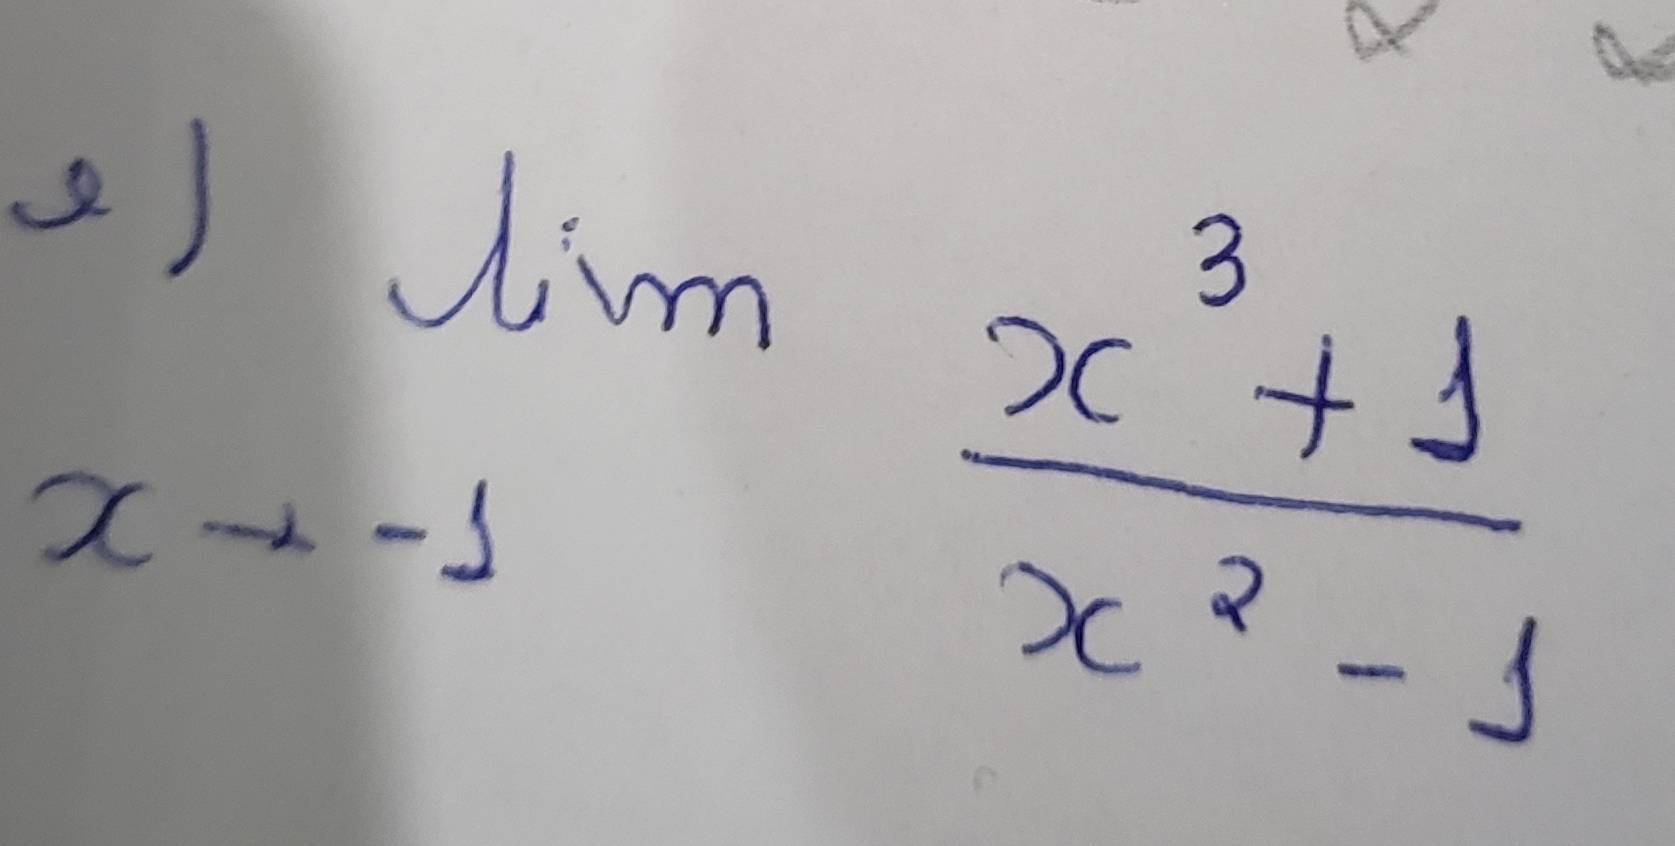 e) lim x³ + 1
x → -1 x² - 1